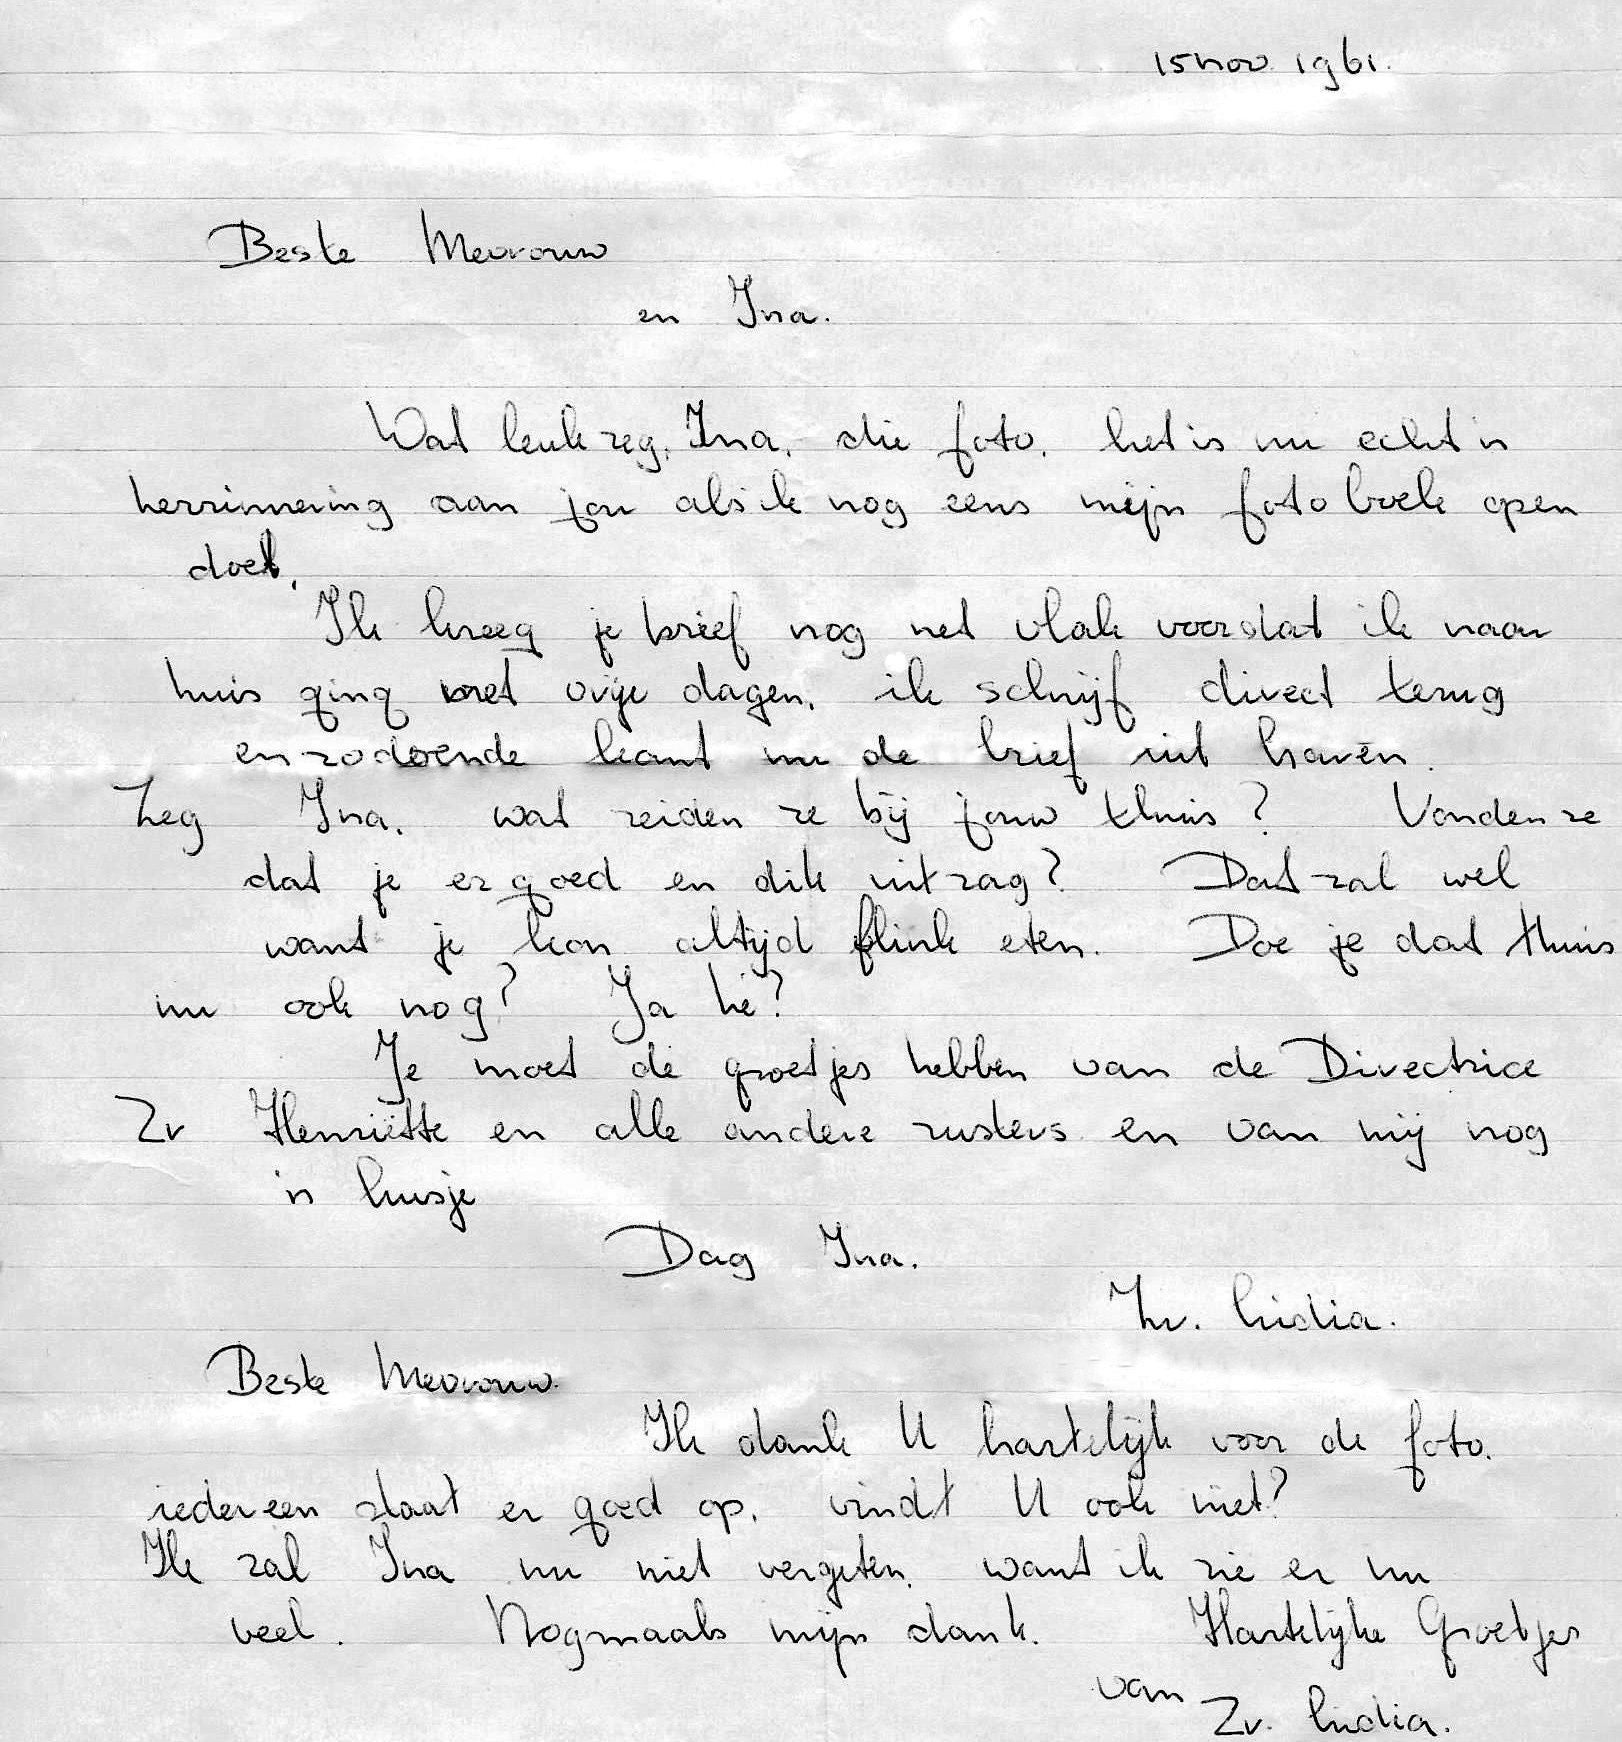 15 nov 1961.
Beste Mevrouw
en Ina.
Wat leuk zeg, Ina, die foto, het is nu echt 'n
herrinnering aan jou als ik nog eens mijn fotoboek open
doet.
Ik kreeg je brief nog net vlak voordat ik naar
huis ging met vrije dagen, ik schrijf direct terug
en zodoende komt nu de brief uit haven.
Zeg Ina, wat zeiden ze bij jouw thuis? Vonden ze
dat je er goed en dik uitzag? Dat zal wel
want je kon altijd flink eten. Doe je dat thuis
nu ook nog? Ja hé?
Je moet de groetjes hebben van de Directrice
Zr Henriëtte en alle andere zusters en van mij nog
'n kusje
Dag Ina.
Zr. Lidia.
Beste Mevrouw.
Ik dank U hartelijk voor de foto.
iedereen staat er goed op, vindt U ook niet?
Ik zal Ina nu niet vergeten, want ik zie er nu
veel. Nogmaals mijn dank. Hartelijke Groetjes
van
Zr. Lidia.